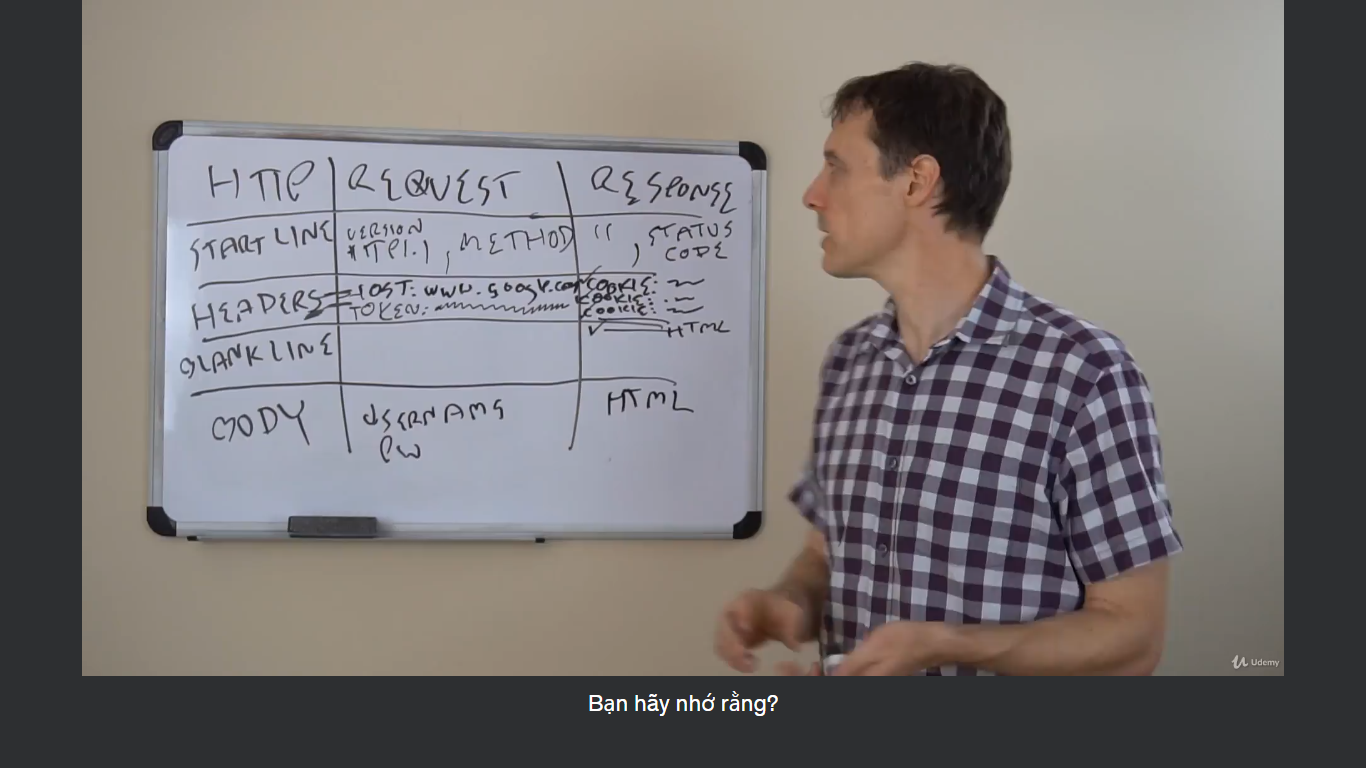 HTTP REQUEST RESPONSE
START LINE VERSION HTTP1.1, METHOD " , STATUS CODE
HEADERS HOST: www.google.com COOKIE:
TOKEN: COOKIE:
COOKIE:
HTML
BLANK LINE
BODY USERNAME HTML
PW
Udemy
Bạn hãy nhớ rằng?